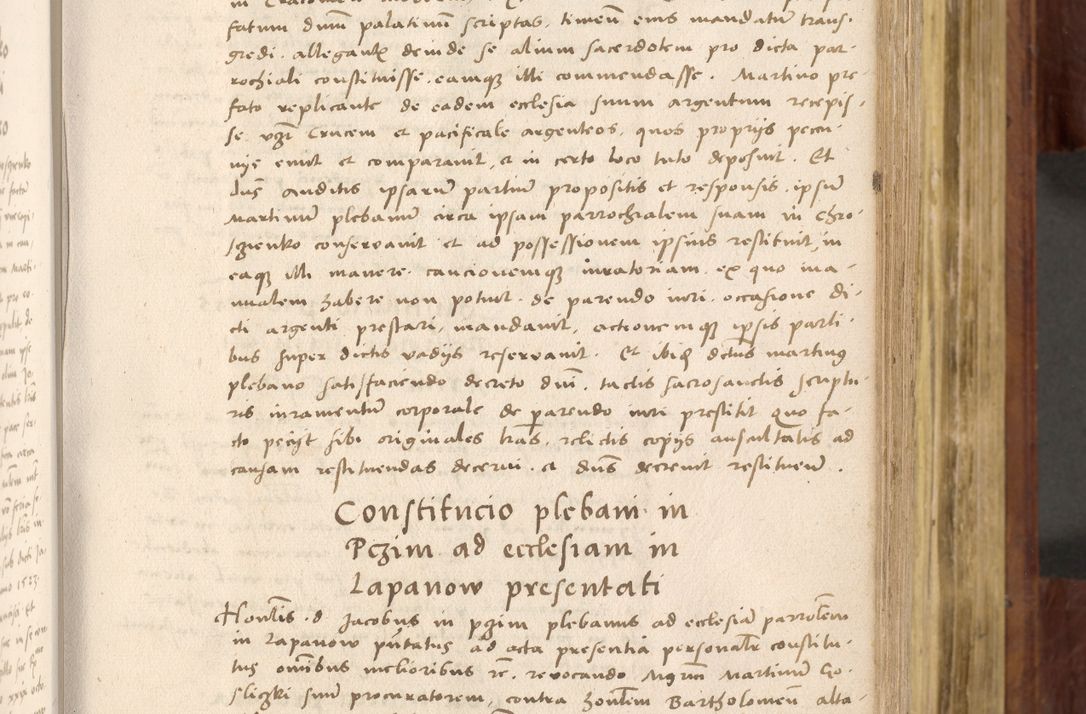 fatum dnum palatinum scriptas, timens eius mandatum trans-
gredi. allegantem deinde se alium sacerdotem pro dicta par-
rochiali constituisse, eamque illi commendasse. Martino pre-
fato replicante de eadem ecclesia suum argentum recepis-
se vizt Crucem et pacificale argenteos, quos proprijs pecu-
nijs emit et comparavit, et in certo loco tuto deposuit. Et
dns auditis ipsarum partium propositis et responsis, ipsum
Martinum plebanum circa ipsam parrochialem suam in Chro-
szienko conservavit et ad possessionem ipsius restituit, in
eaque illi manere. caucionemque iuratoriam, ex quo ma-
nualem habere non potuit, de parendo iuri, occasione di-
cti argenti prestari, mandavit, actionemque ipsis parti-
bus super dictis vadijs reservavit. Et ibidem dictus martinus
plebano satisfaciendo decreto dni, tactis sacrosanctis scriptu-
ris iuramentum corporale de parendo iuri prestitit quo fa-
cto pecijt sibi originales lras, relictis copijs auscultatis ad
causam restituendas decerni. et dns decrevit restituend.
Constitucio plebani in
Pczim ad ecclesiam in
Lapanow presentati
Honlis d Jacobus in pczim plebanus ad ecclesiam parrolem
in Lapanow pntatus ad acta presentia personalr constitu-
tus omibus melioribus rc. revocando Mgrum Martinum Go-
sliczki suum procuratorem, contra honlem Bartholomeum alta-